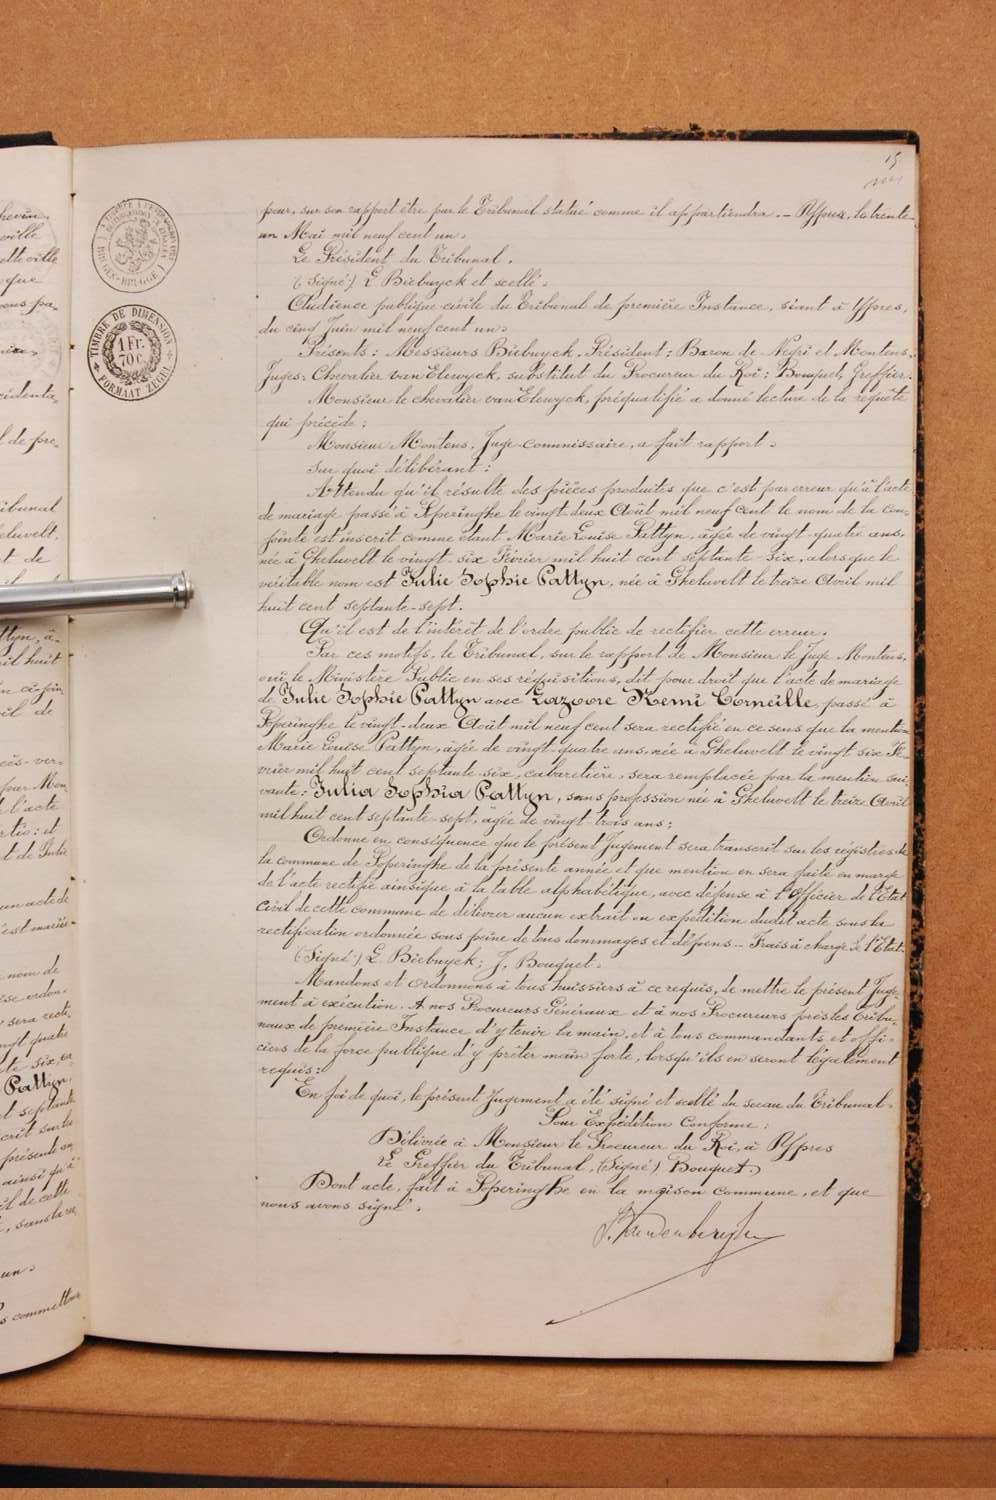 15
pour, sur son rapport être par le Tribunal statué comme il appartiendra. — Ypres, le trente-
un Mai mil neuf cent un.
Le Président du Tribunal.
(Signé) L. Biebuyck et scellé.
Audience publique civile du Tribunal de première Instance, séant à Ypres,
du cinq Juin mil neuf cent un.
Présents: Messieurs Biebuyck, Président; Baron de Negri et Montens,
Juges; Chevalier van Elewyck, substitut du Procureur du Roi; Bouquet, Greffier.
Monsieur le chevalier van Elewyck, préqualifié a donné lecture de la requête
qui précède;
Monsieur Montens, Juge-commissaire, a fait rapport.
Sur quoi délibérant:
Attendu qu'il résulte des pièces produites que c'est par erreur qu'à l'acte
de mariage passé à Poperinghe le vingt deux Août mil neuf cent le nom de la con-
jointe est inscrit comme étant Marie Louise Pattyn, âgée de vingt-quatre ans,
née à Gheluvelt le vingt-six Février mil huit cent septante-six, alors que le
véritable nom est Julie Sophie Pattyn, née à Gheluvelt le treize Avril mil
huit cent septante-sept.
Qu'il est de l'intérêt de l'ordre public de rectifier cette erreur.
Par ces motifs, le Tribunal, sur le rapport de Monsieur le Juge Montens,
ouï le Ministère Public en ses réquisitions, dit pour droit que l'acte de mariage
de Julie Sophie Pattyn avec Lazoore Remi Corneille, passé à
Poperinghe le vingt-deux Août mil neuf cent sera rectifié en ce sens que la mention
Marie Louise Pattyn, âgée de vingt-quatre ans, née à Gheluvelt le vingt six Fé-
vrier mil huit cent septante-six, cabaretière, sera remplacée par la mention sui-
vante: Julia Sophia Pattyn, sans profession née à Gheluvelt le treize Avril
mil huit cent septante sept, âgée de vingt-trois ans;
Ordonne en conséquence que le présent Jugement sera transcrit sur les régistres de
la commune de Poperinghe de la présente année et que mention en sera faite en marge
de l'acte rectifié ainsi que à la table alphabétique, avec défense à l'Officier de l'Etat
Civil de cette commune de délivrer aucun extrait ou expédition dudit acte sans la
rectification ordonnée sous peine de tous dommages et dépens — Frais à charge de l'Etat.
(Signé) L. Biebuyck; J. Bouquet.
Mandons et Ordonnons à tous huissiers à ce requis, de mettre le présent Juge-
ment à exécution. A nos Procureurs Généraux et à nos Procureurs près les Tribu-
naux de première Instance d'y tenir la main, et à tous commandants et offi-
ciers de la force publique d'y prêter main forte, lorsqu'ils en seront légalement
requis:
En foi de quoi, le présent Jugement a été signé et scellé du sceau du Tribunal.
Pour Expédition Conforme:
Délivrée à Monsieur le Procureur du Roi, à Ypres
Le Greffier du Tribunal, (Signé) Bouquet.
Dont acte, fait à Poperinghe en la maison commune, et que
nous avons signé.
BRUGES-BRUGGE
TIMBRE DE DIMENSION
1 Fr.
70 c.
FORMAAT ZEGEL
ville
que
Tribunal
Gheluvelt,
t de
-ttyn, â-
mil huit
ci-join
l'acte
t de Julie
un acte de
nom de
sera recti-
Pattyn,
t septante
présente an
ainsi qu'à
sans la rec
un.
commettre